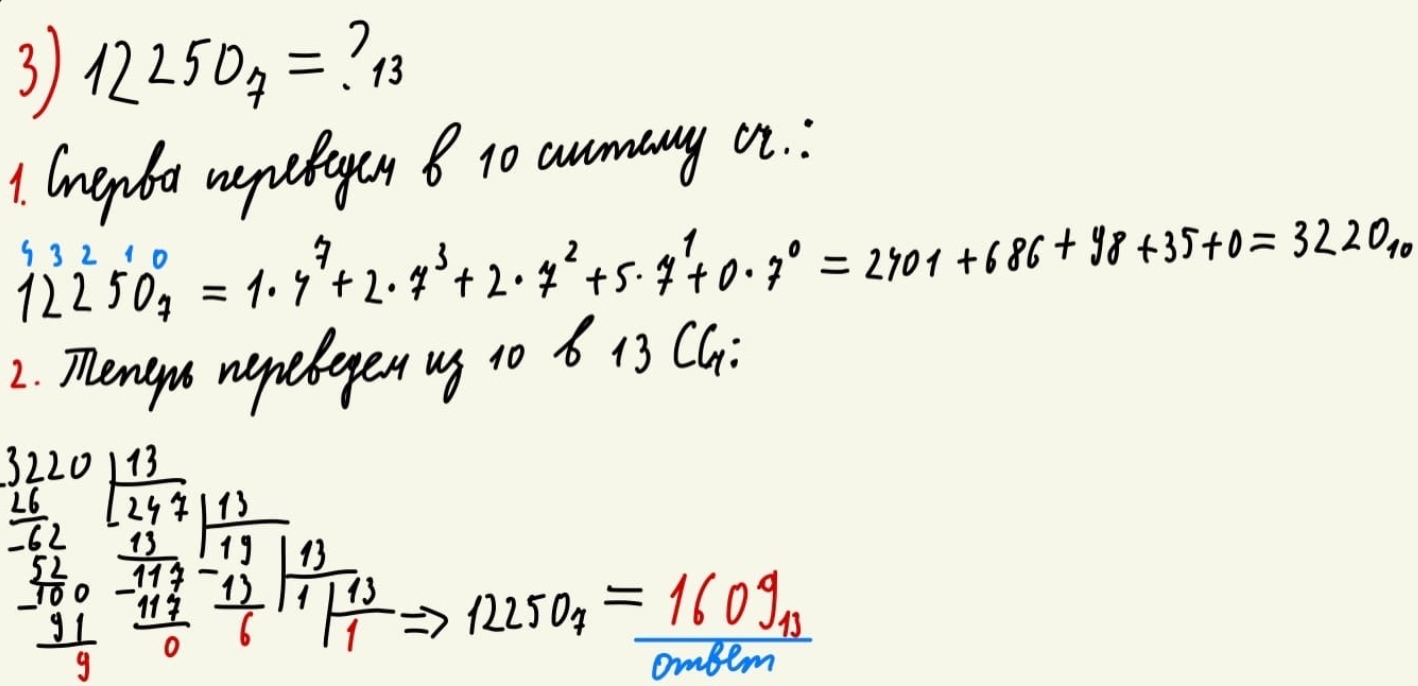 3) 12250₇ = ?₁₃
1. Сперва переведем в 10 систему сч.:
4 3 2 1 0
12250₇ = 1·4⁷ + 2·7³ + 2·7² + 5·7¹ + 0·7⁰ = 2401 + 686 + 98 + 35 + 0 = 3220₁₀
2. Теперь переведем из 10 в 13 ССч:
3220 | 13
26 247 | 13
-62 13 19 | 13
52 -117 -13 1 | 13
-100 117 6 1 => 12250₇ = 1609₁₃
91 0 ответ
9